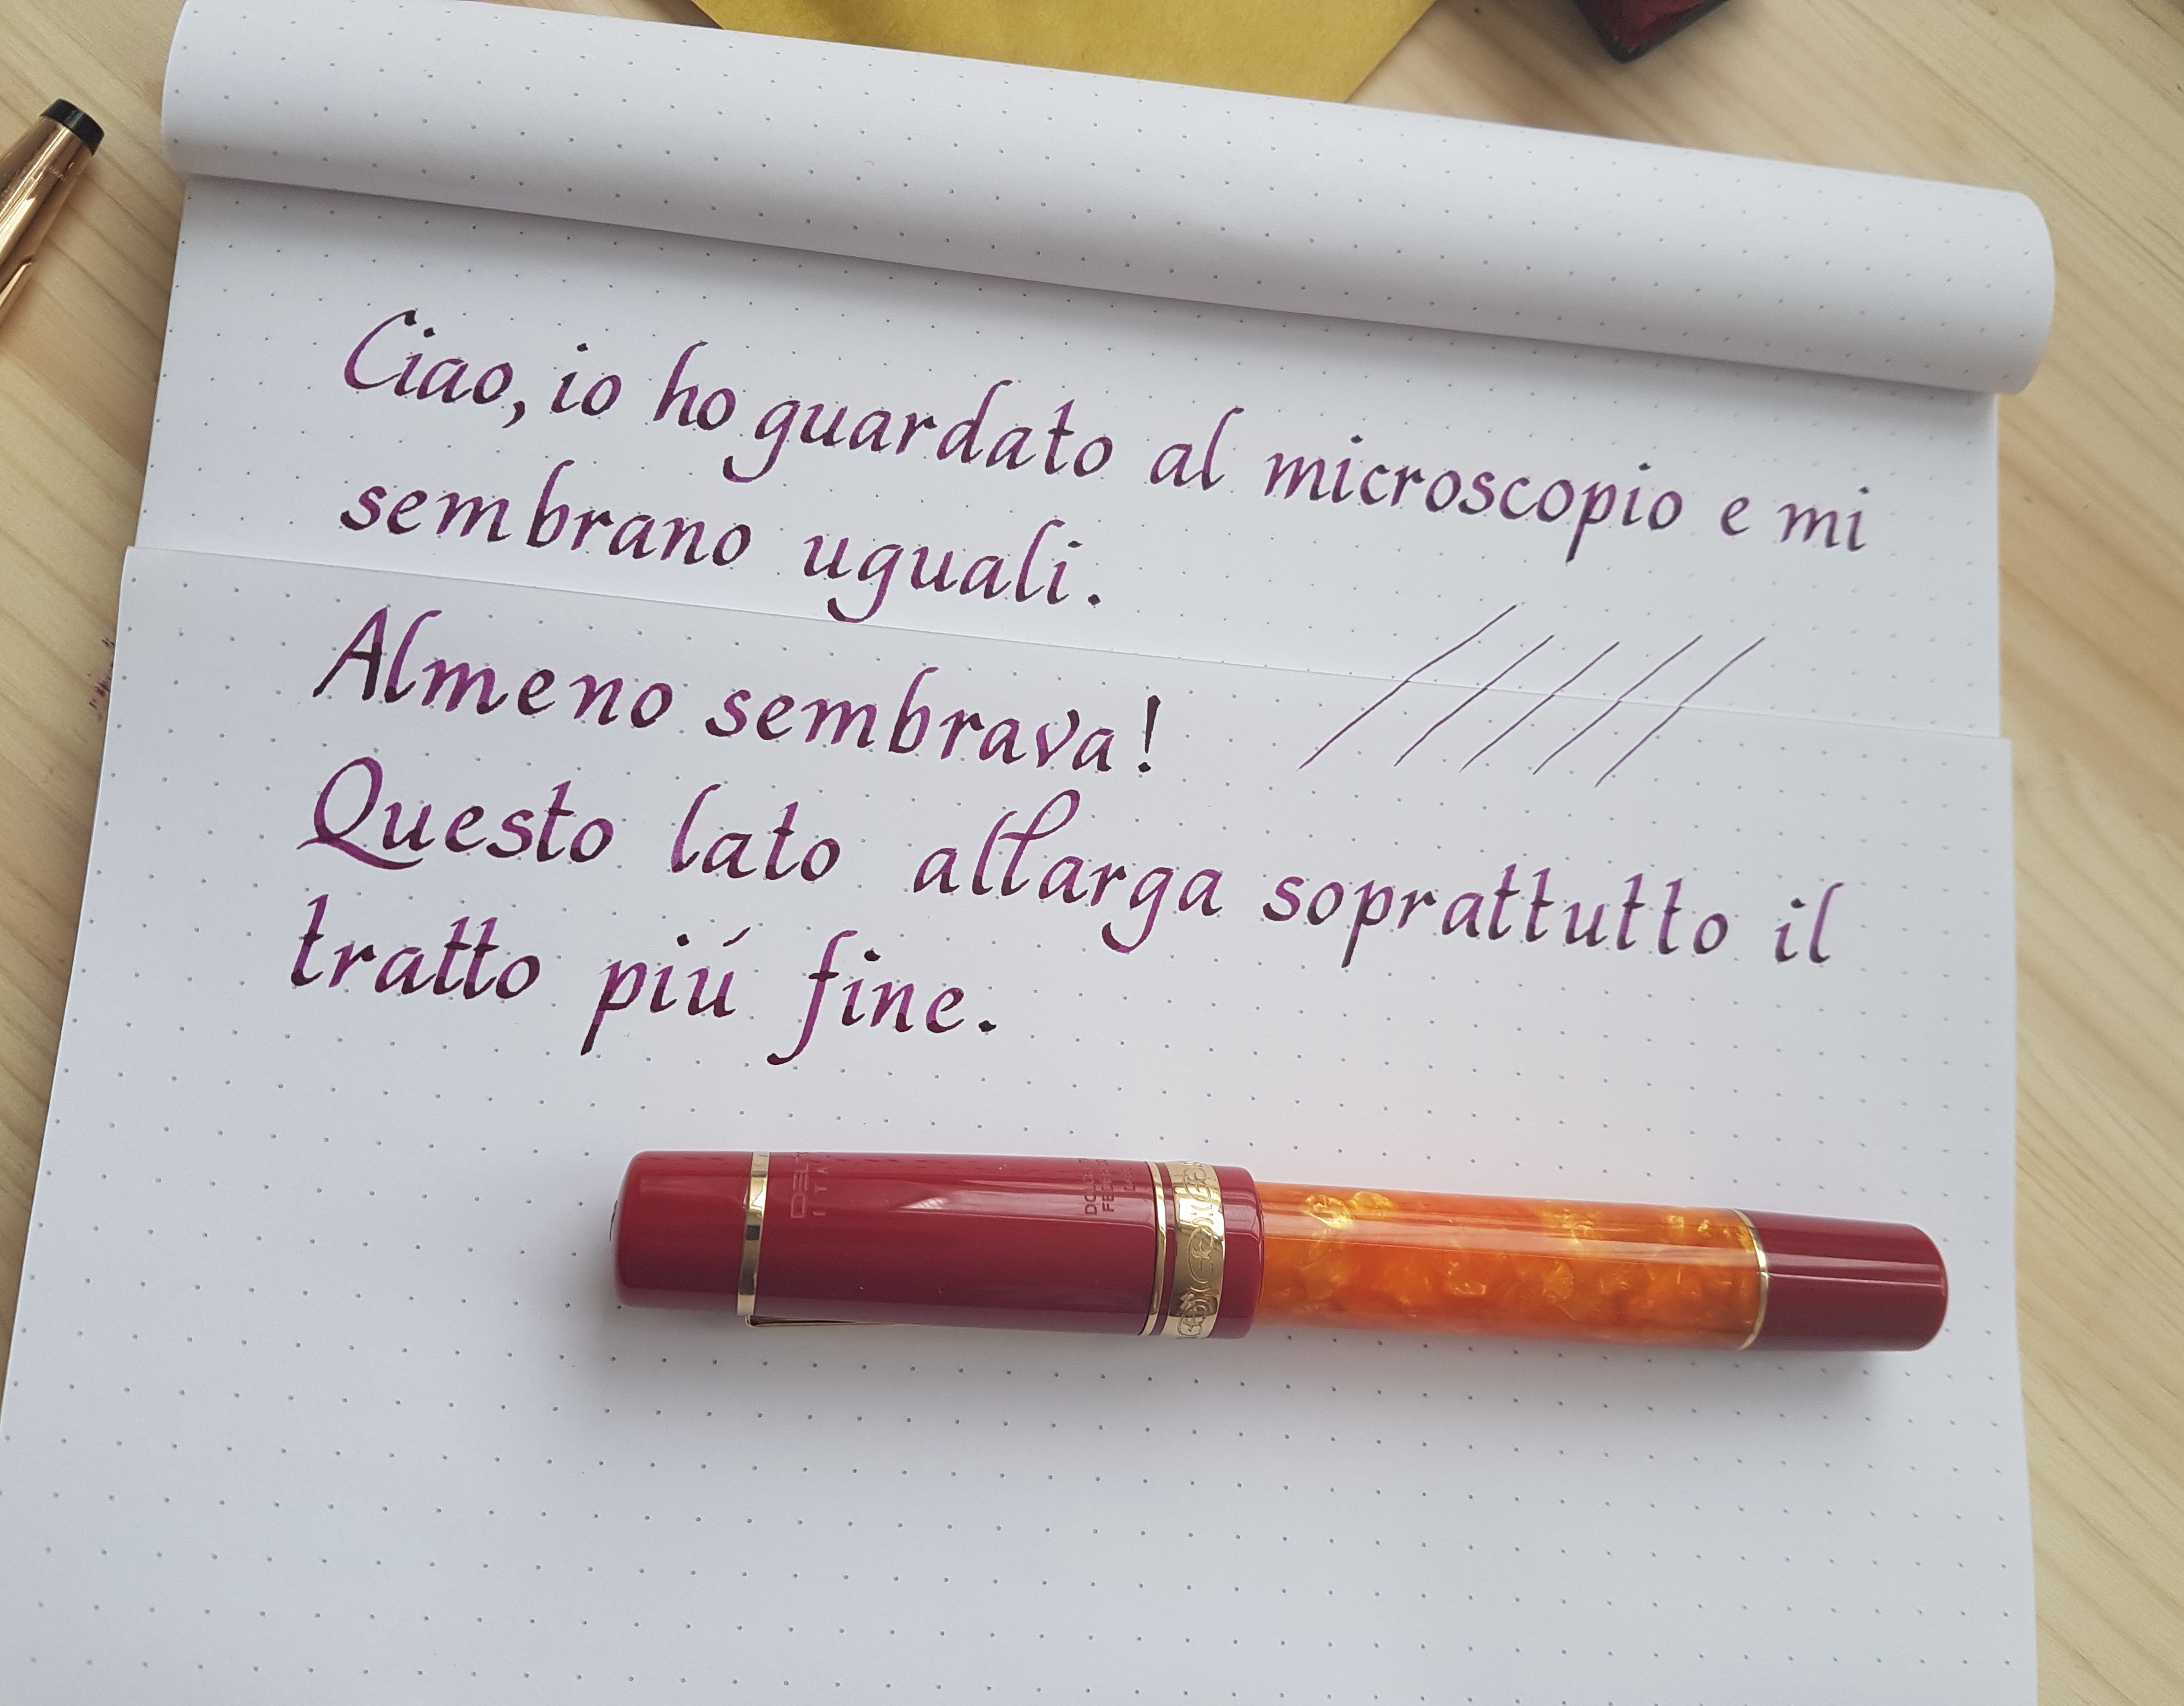 Ciao, io ho guardato al microscopio e mi
sembrano uguali.
Almeno sembrava!
Questo lato allarga soprattutto il
tratto piú fine.
DELTA
ITA